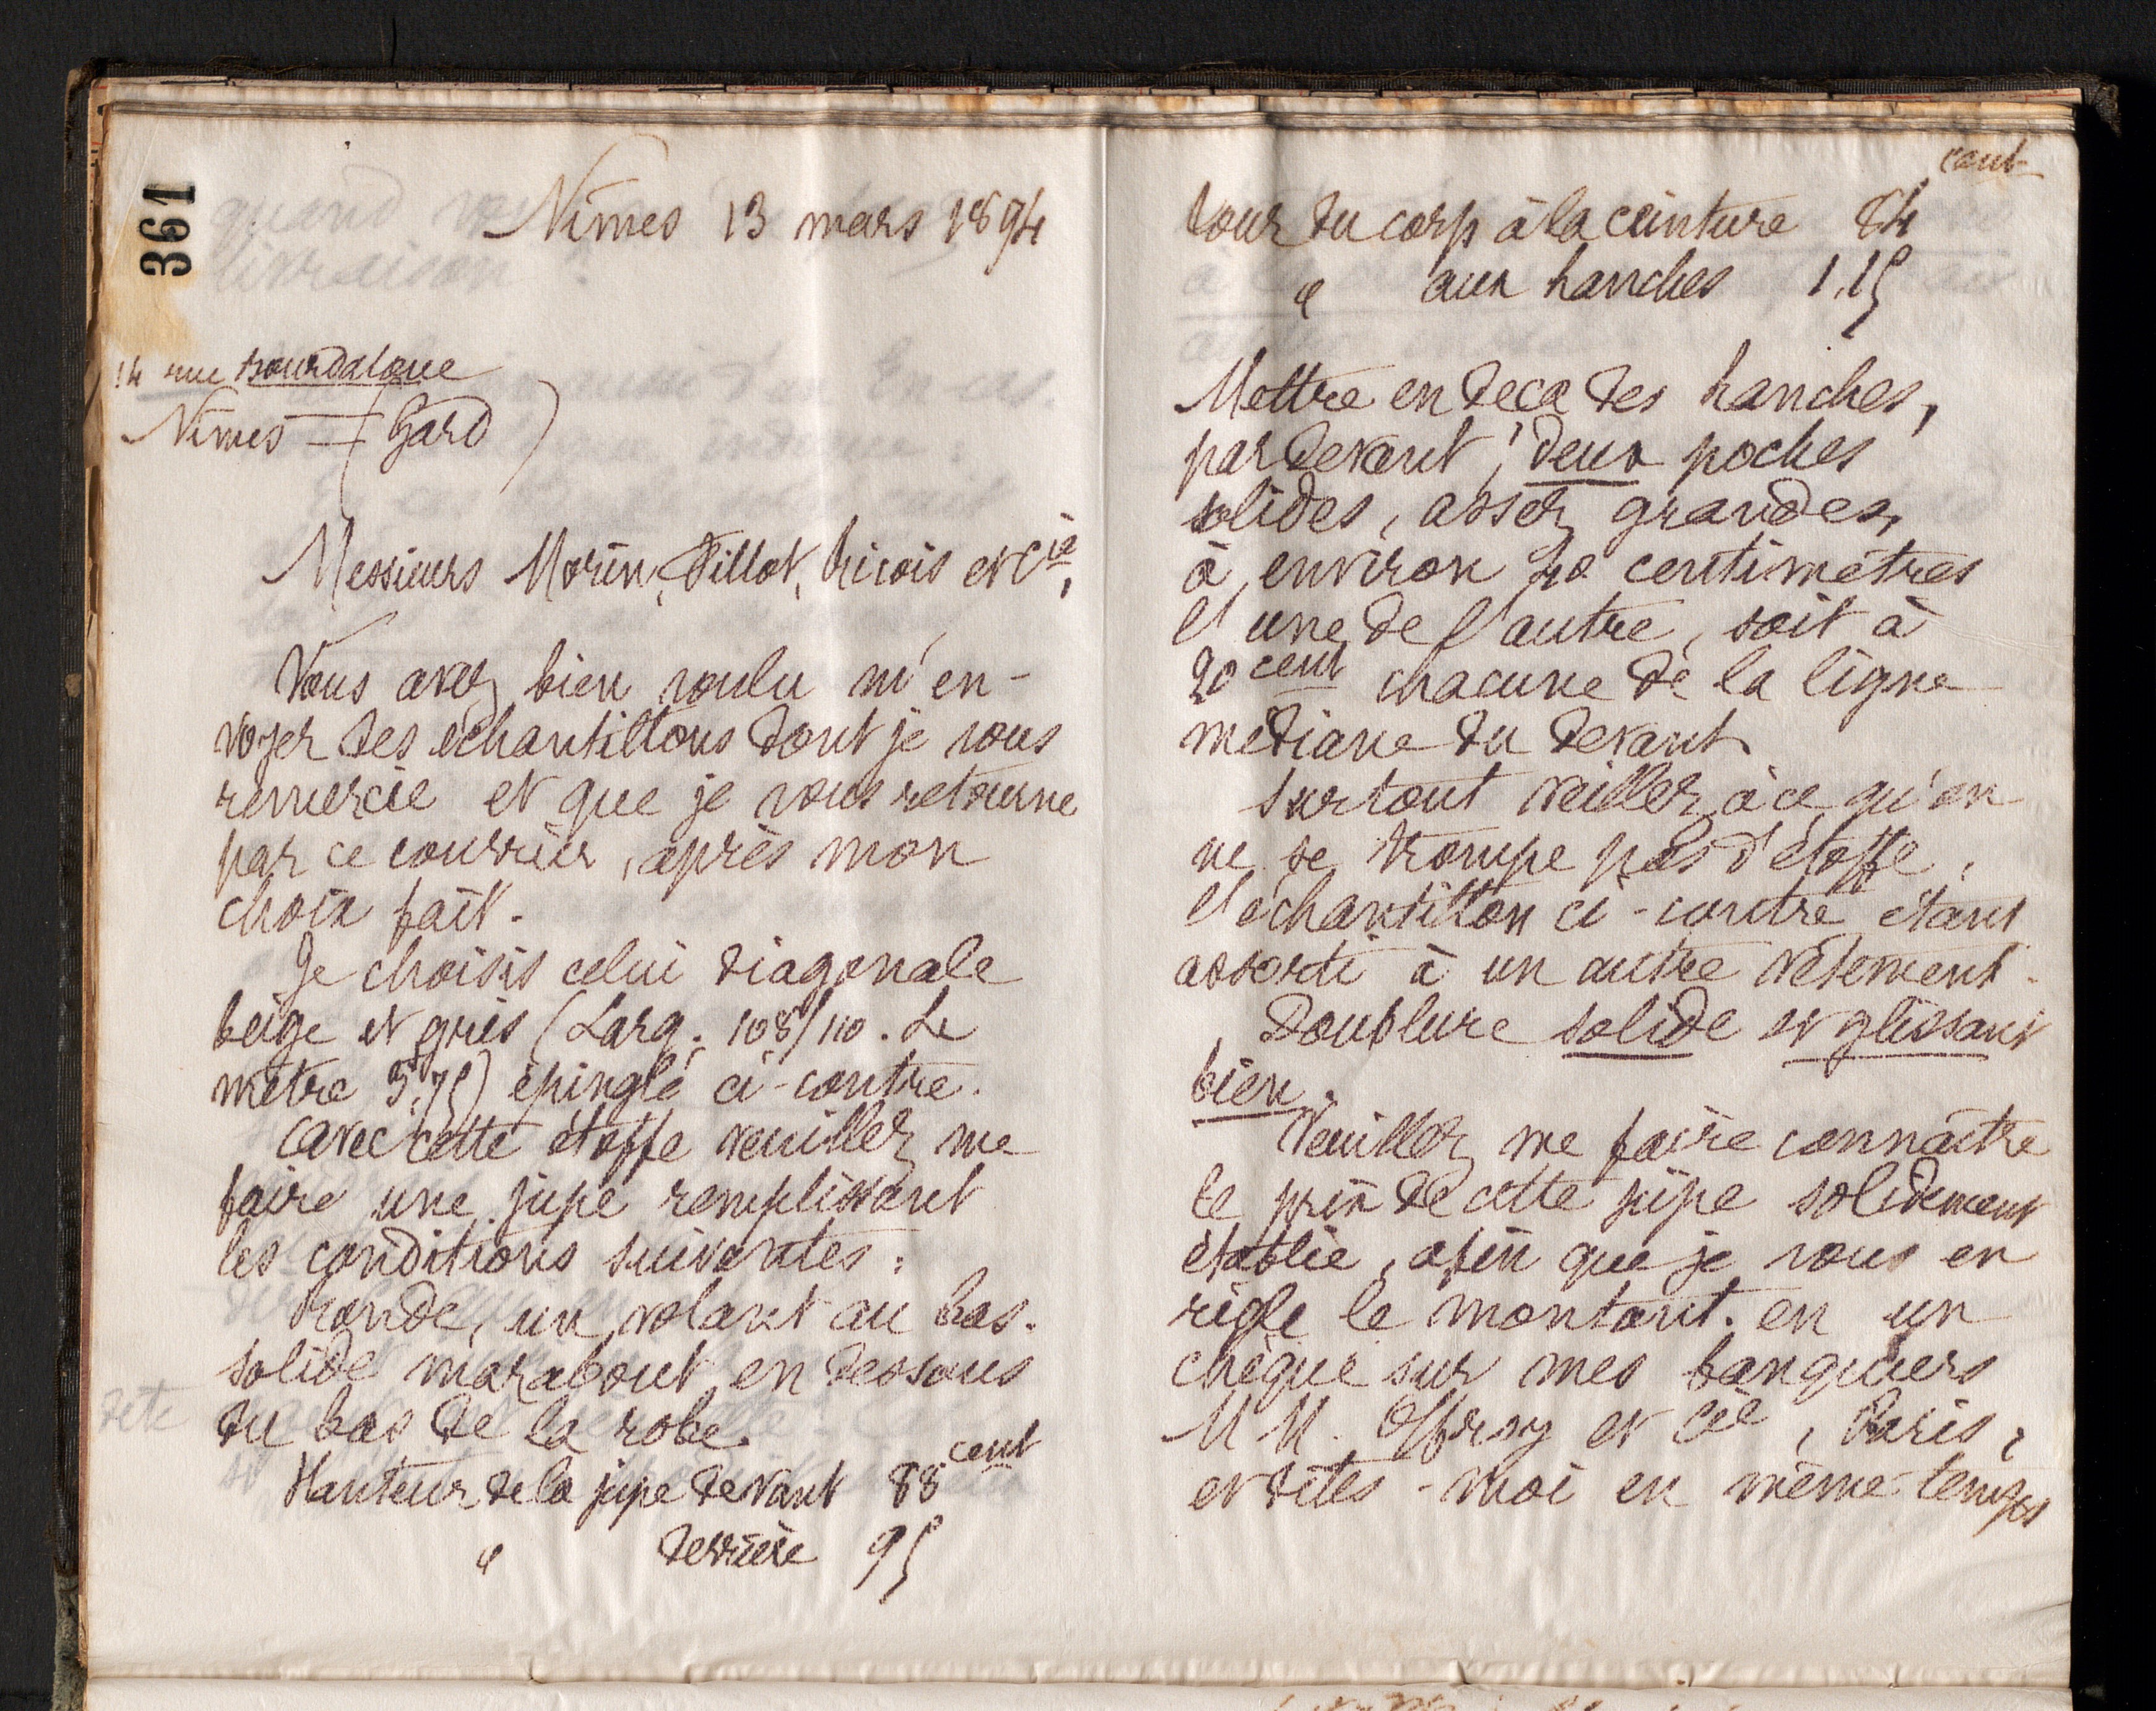 361
Nîmes 13 mars 1894
14 rue Bourdaloue
Nîmes (Gard)
Messieurs Morin, Fillot, Ricois et Cie,
Vous avez bien voulu m'en-
voyer des échantillons dont je vous
remercie et que je vous retourne
par ce courrier, après mon
choix fait.
Je choisis celui diagonale
beige et gris (Larg. 108/110. Le
mètre 5,75) épinglé ci-contre.
Avec cette étoffe veuillez me
faire une jupe remplissant
les conditions suivantes :
Ronde, un volant au bas.
solide marabout en dessous
du bas de la robe.
Hauteur de la jupe devant 88 cent
" derrière 95
cent
tour du corp à la ceinture 84
" aux hanches 1,15
Mettre en deca des hanches,
par devant, deux poches
solides, assez grandes,
à environ 40 centimètres
l'une de l'autre, soit à
20 cent chacune de la ligne
médiane du devant.
Surtout veillez à ce qu'on
ne se trompe pas d'étoffe,
l'échantillon ci-contre étant
assorti à un autre vêtement.
Doublure solide et glissant
bien.
Veuillez me faire connaître
le prix de cette jupe solidement
établie, afin que je vous en
règle le montant. en un
chèque sur mes banquiers
M M. Offroy et Cie, Paris,
et dites-moi en même temps